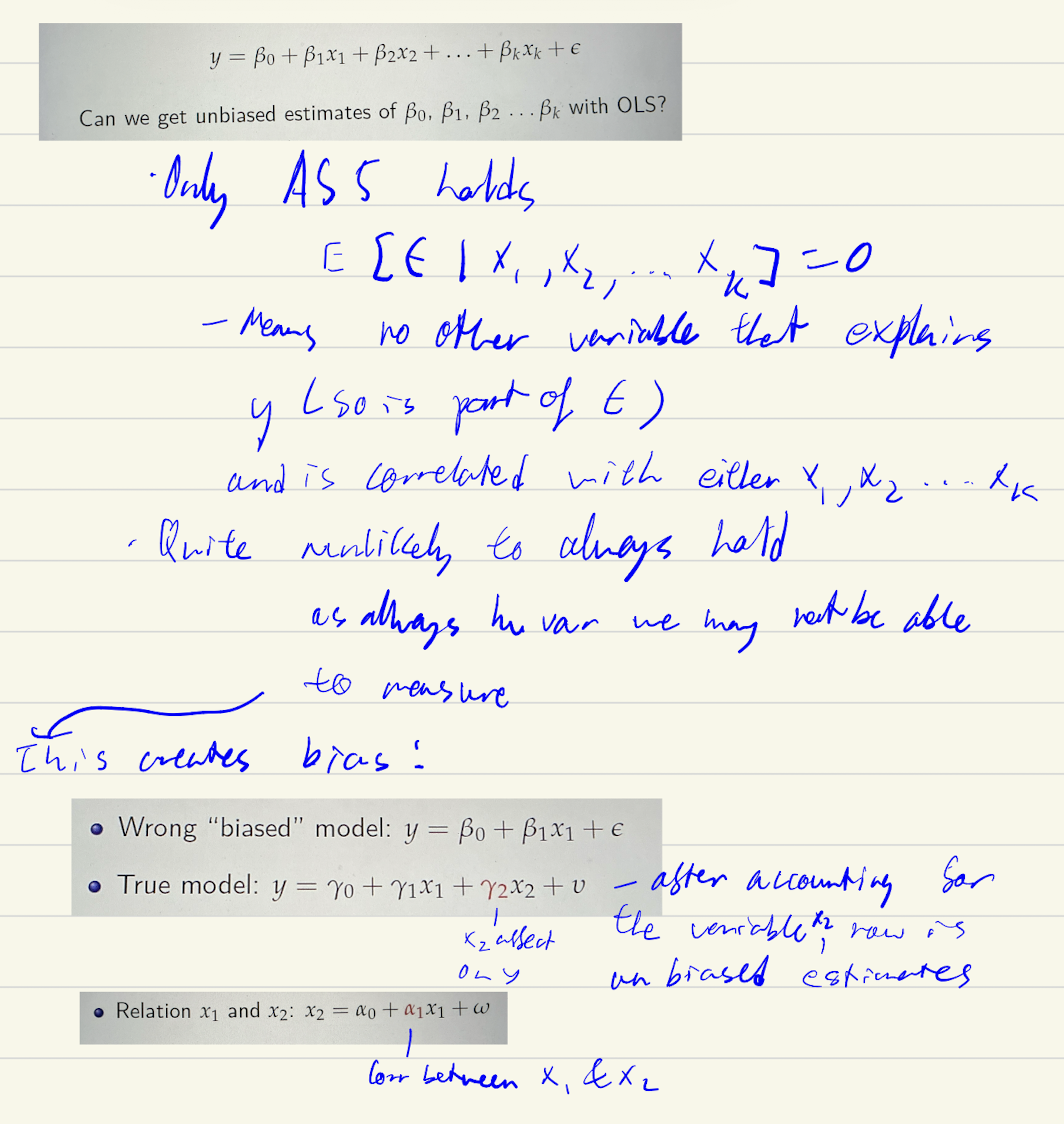 y = β₀ + β₁x₁ + β₂x₂ + … + βₖxₖ + ϵ
Can we get unbiased estimates of β₀, β₁, β₂ … βₖ with OLS?
· Only AS5 holds
E [ϵ | x₁, x₂, … xₖ] = 0
– Means no other variable that explains
y (so is part of ϵ)
and is correlated with either x₁, x₂ … xₖ
· Quite unlikely to always hold
as always var we may not be able
to measure
This creates bias:
• Wrong “biased” model: y = β₀ + β₁x₁ + ϵ
• True model: y = γ₀ + γ₁x₁ + γ₂x₂ + υ
– after accounting for
the variable x₂, now is
unbiased estimates
x₂ affect
on y
• Relation x₁ and x₂: x₂ = α₀ + α₁x₁ + ω
Corr between x₁ & x₂